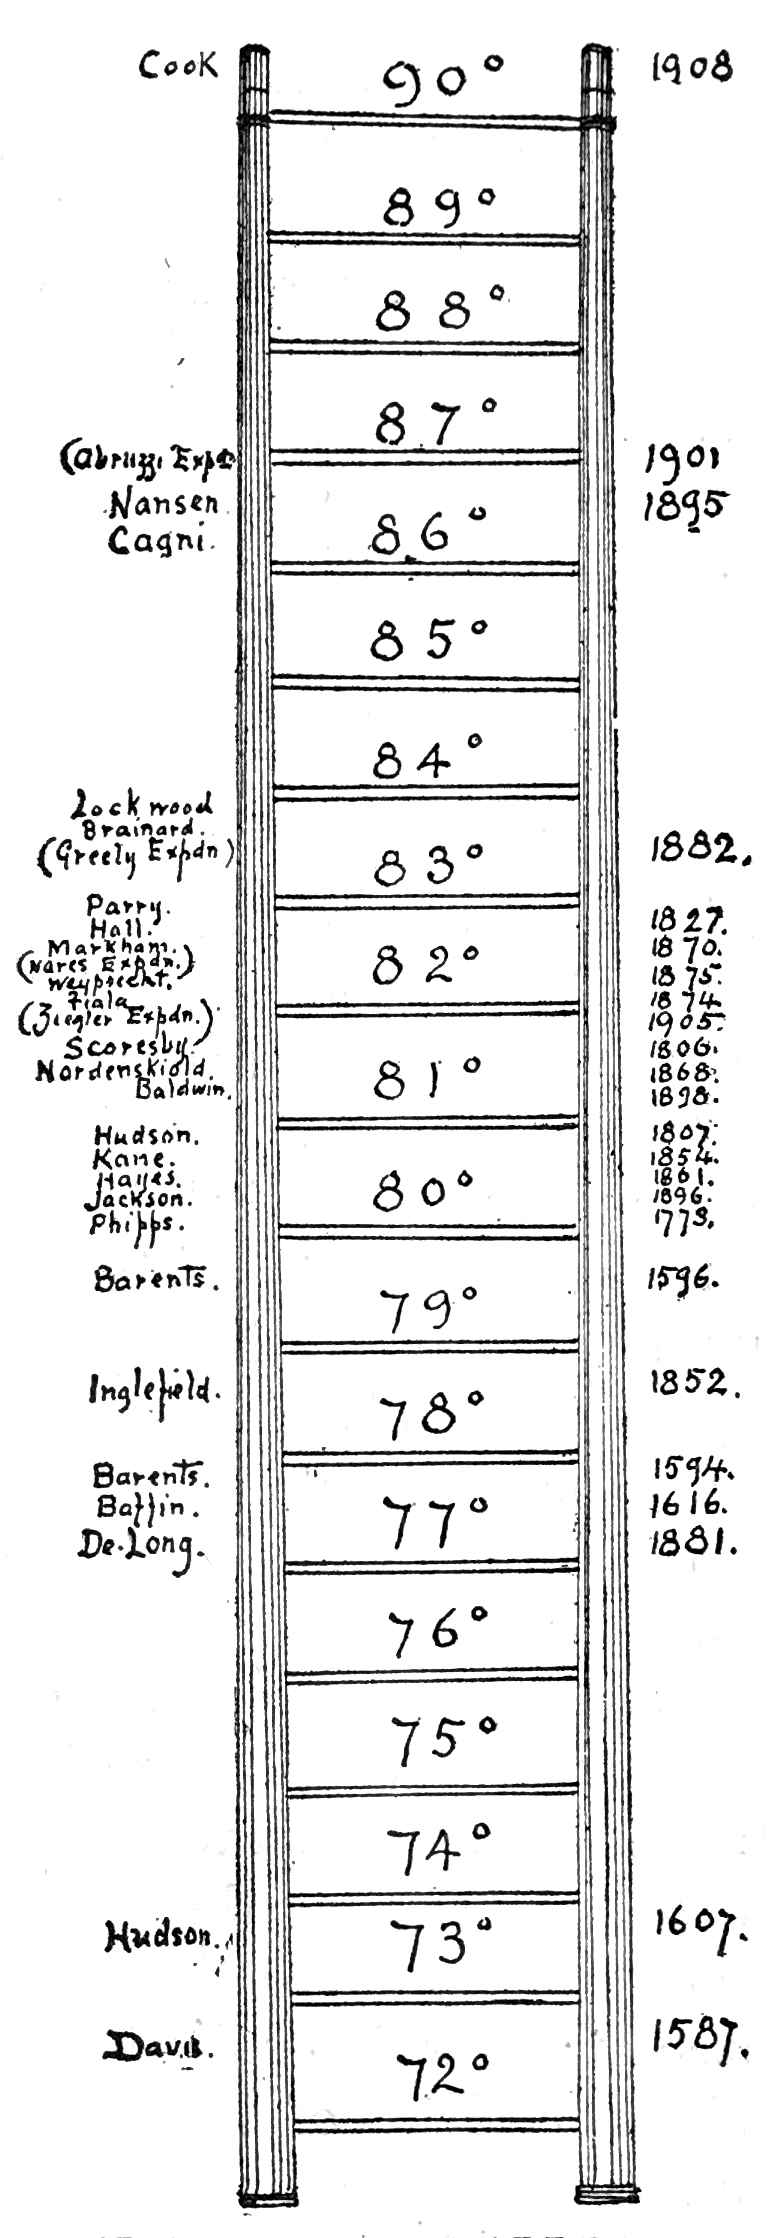 Cook 90° 1908
89°
88°
87°
(Abruzzi Expd. 1901
Nansen 1895
Cagni. 86°
85°
84°
Lockwood
Brainard.
(Greely Expdn) 83° 1882.
Parry. 1827.
Hall. 1870.
Markham.
(Nares Expdn.) 82° 1875.
Weyprecht. 1874
Fiala
(Ziegler Expdn.) 1905.
Scoresby. 1806.
Nordenskiold. 81° 1868.
Baldwin. 1898.
Hudson. 1807.
Kane. 1854.
Hayes. 1861.
Jackson. 80° 1896.
Phipps. 1773.
Barents. 79° 1596.
Inglefield. 78° 1852.
Barents. 1594.
Baffin. 77° 1616.
De Long. 1881.
76°
75°
74°
Hudson. 73° 1607.
Davis. 72° 1587.